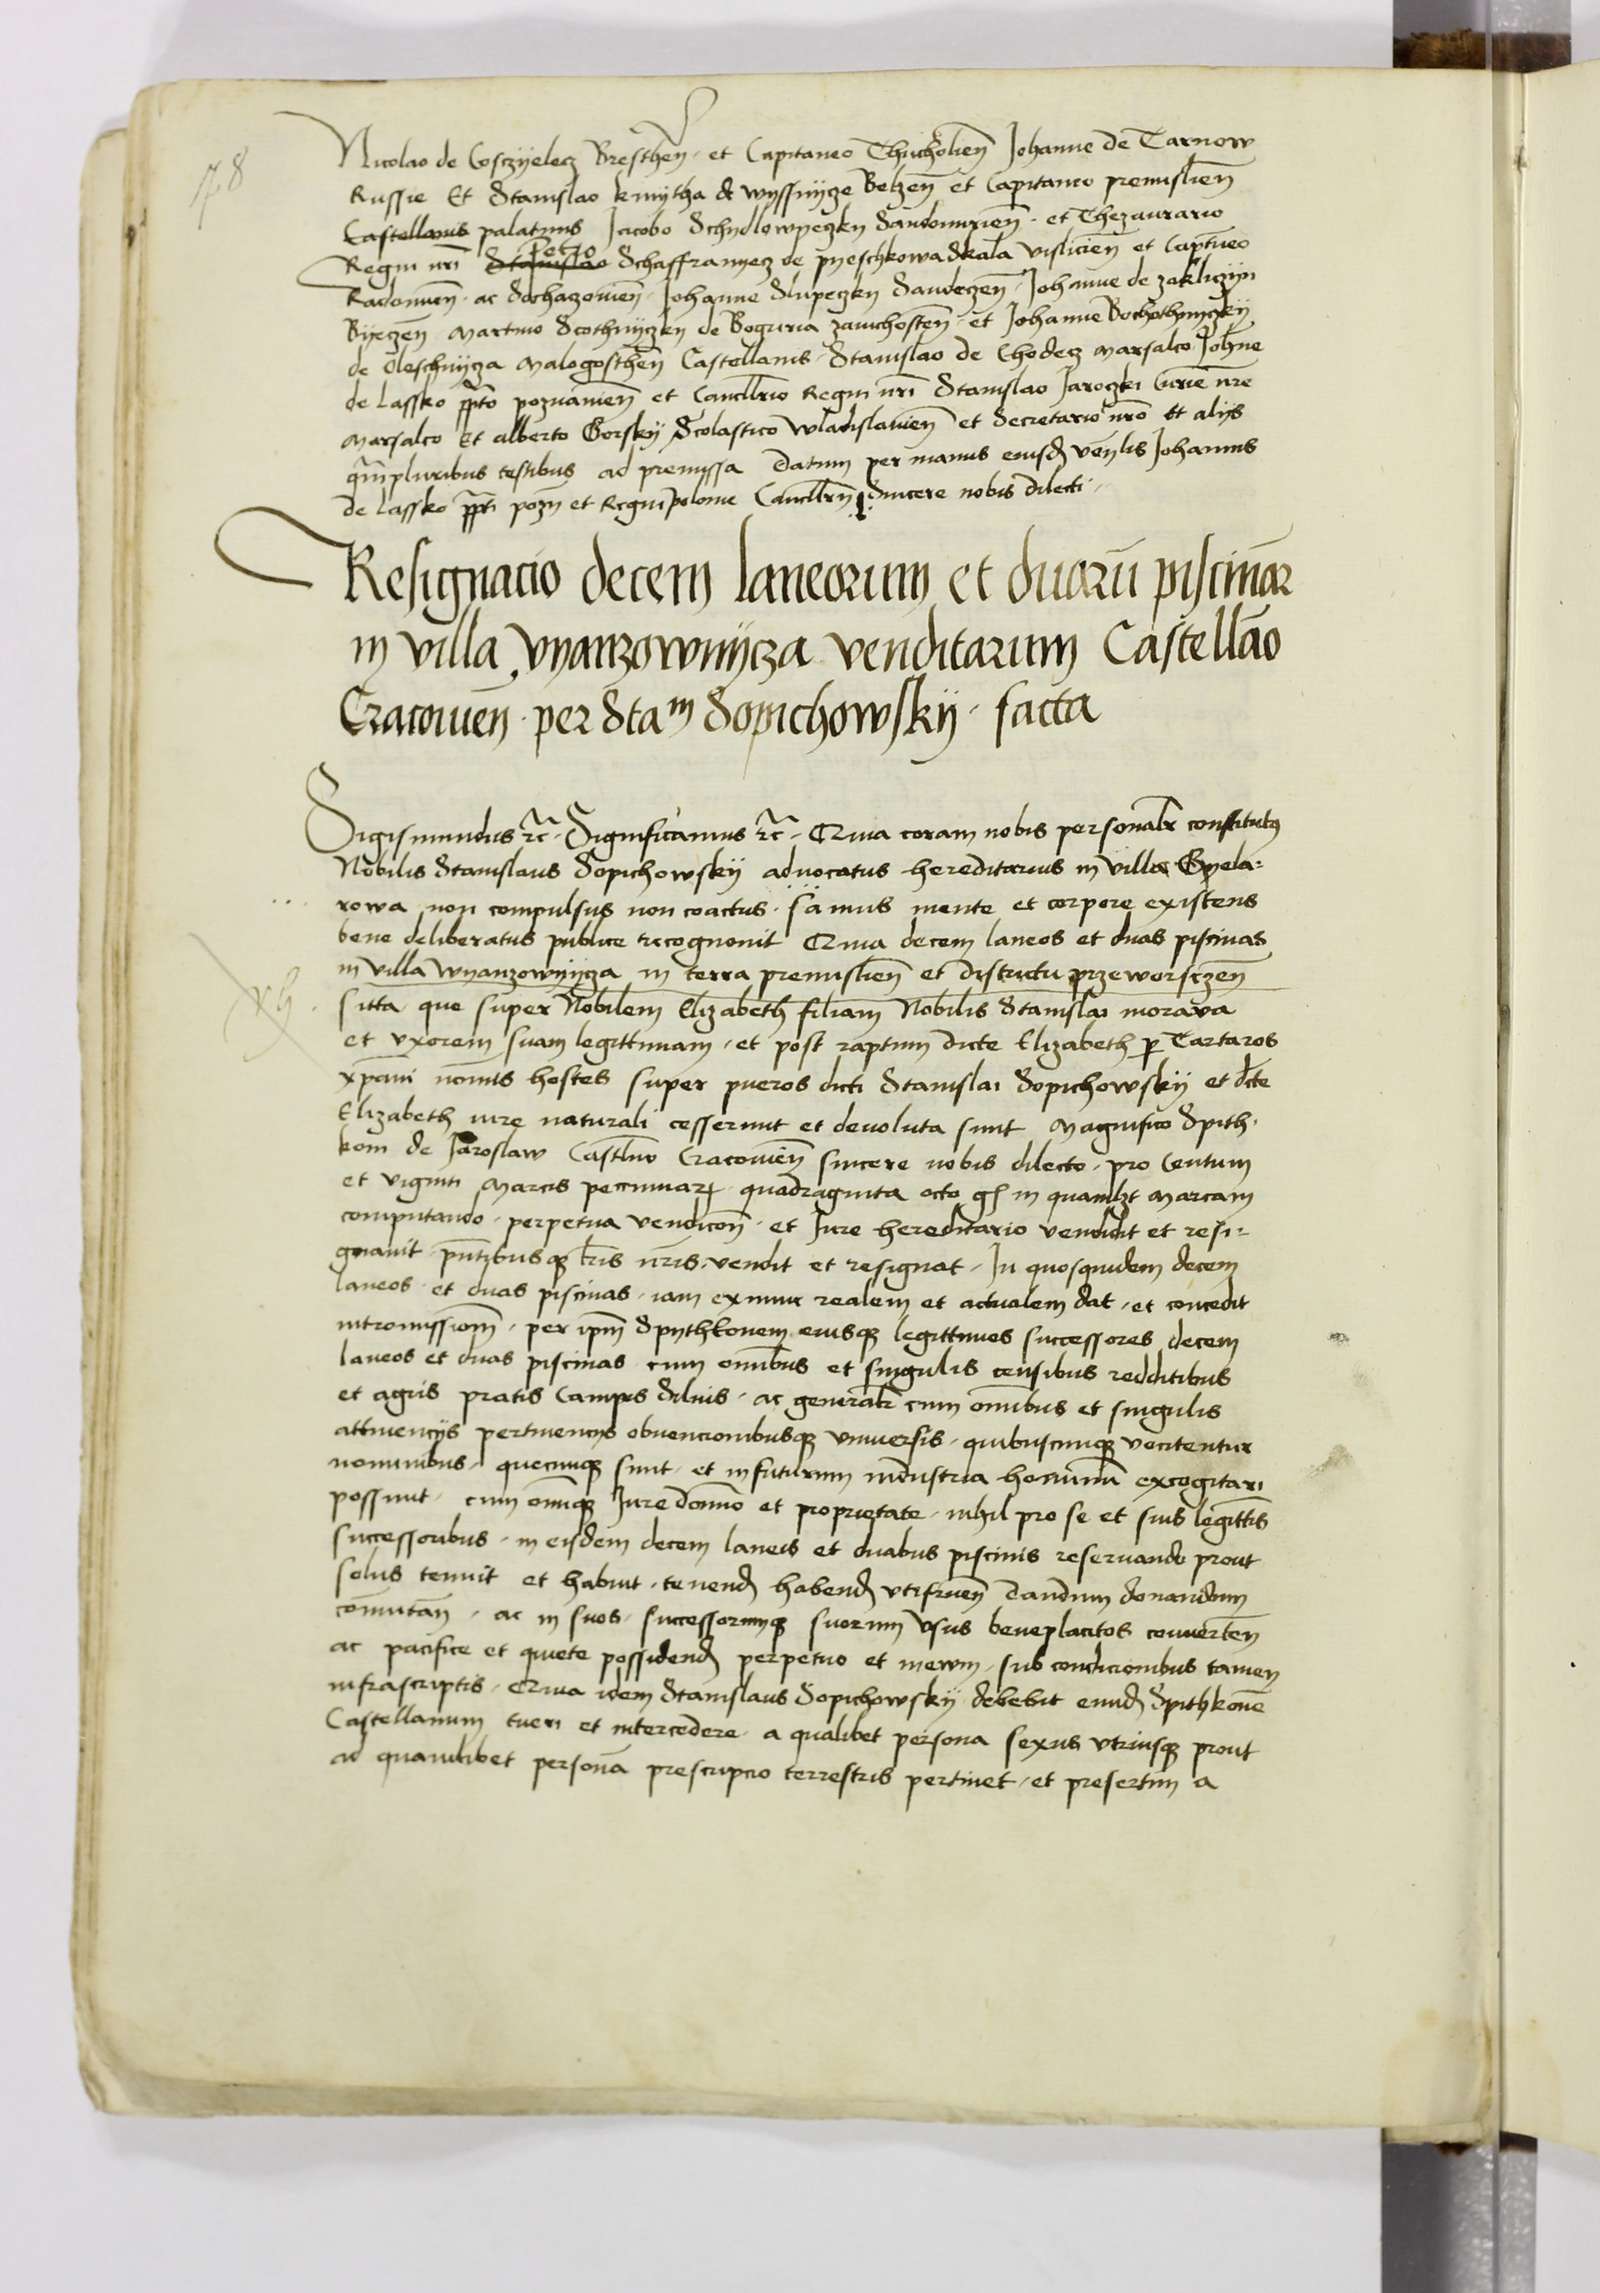 78
Nicolao de Cosczyelecz Bresthen̄ · et Capitaneo Thucholien̄ Johanne de Tarnow
Russie Et Stanislao kmytha de wyssnycze Belzen̄ et Capitaneo premislien̄
Castellanis palatinis Jacobo Schydlowyeczky Sandomirien̄ · et Thezaurario
Petro
Regni nr̄i Stanislao Schaffranyecz de pyeschkowa Skala vislicien̄ et Capt̄neo
Radomien̄ · ac Sochaczovien̄ · Johanne Slupeczky Sandeczen̄ · Johanne de zakliczyn
Byeczen̄ Martino Scothnyczky de Boguria zawichosten̄ · et Johanne Bochothnyczky
de Oleschnycza Malogosthen̄ Castellanis · Stanislao de Chodecz Marsalco Joh̄ne
de Lassko pp̄to poznanien̄ et Canc̄llrio Regni nr̄i Stanislao Jaroczki Curie nr̄e
Marsalco Et alberto Gorsky Scolastico Wladislavien̄ et Secretario nr̄o Et alijs
q̄mpluribus testibus ad premissa Datum per manus eiusd̄ ven̄lis Johannis
de Lassko pp̄ti pozn̄ et Regni polonie Canc̄llrij Sincere nobis dilecti ·
Resignacio decem laneorum et duarū piscinar̄
in villa vyanzownycza venditarum Castellāo
Cracovien̄ · per Stam Sopichowsky · facta
Sigismundus ⁊c̄ · Significamus ⁊c̄ · Quia coram nobis personalr̄ constitutus
Nobilis Stanislaus Sopichowsky aduocatus hereditarius in villa Gyela=
rowa non compulsus non coactus · sanus mente et corpore existens
bene deliberatus publice recognouit Quia decem laneos et duas piscinas
in villa wyanzownycza in terra premislien̄ et districtu przeworsczen̄
xh
sitta que super Nobilem Elizabeth filiam Nobilis Stanislai morava
et vxorem suam legittimam · et post raptum dicte Elizabeth p̄ Tartaros
xp̄iani nomīs hostes super pueros dicti Stanislai Sopichowsky et dc̄te
Elizabeth iure naturali cesserunt et devoluta sunt Magnifico Spith·
koni de Jaroslaw Castl̄no Cracovien̄ sincere nobis dilecto · pro Centum
et viginti Marcis pecuniar̄ · quadraginta octo gr̄ in quamlz̄t Marcam
computando · perpetua vendicōn̄ · et Jure hereditario vendidit et resi=
gnavit · pn̄tibusq̄ l̄ris nr̄is · vendit et resignat · In quosquidem decem
laneos · et duas piscinas · iam exnunc realem et actualem dat · et concedit
intromissionem̄ · per ipm̄ Spythkonem eiusq̄ legittimos successores decem
laneos et duas piscinas cum omībus et singulis censibus redditibus
et agris pratis Campis Siluis · ac generalr̄ cum omībus et singulis
attinencijs pertinencijs obuencionibusq̄ vniuersis · quibuscunq̄ vocitentur
nominibus · quecunq̄ sunt · et in futurum industria hominū excogitari
possunt · cum omīq̄ Jure domīo et proprietate · nihil pro se et suis legittīs
successoribus · in eisdem decem laneis et duabus piscinis reservando prout
solus tenuit et habuit · tenend̄ habend̄ vtifruen̄ dandum donandum
com̄utan̄ · ac in suos · successorumq̄ suorum vsus beneplacitos conuerten̄
ac pacifice et quiete possidend̄ perpetuo et inewm · sub condicionibus tamen
infrascriptis · Quia idem Stanislaus Sopichowsky debebit eund̄ Spithkonē
Castellanum tueri et intercedere · a qualibet persona sexus vtriusq̄ prout
ad quamlibet personā prescripcio terrestris pertinet · et presertim a